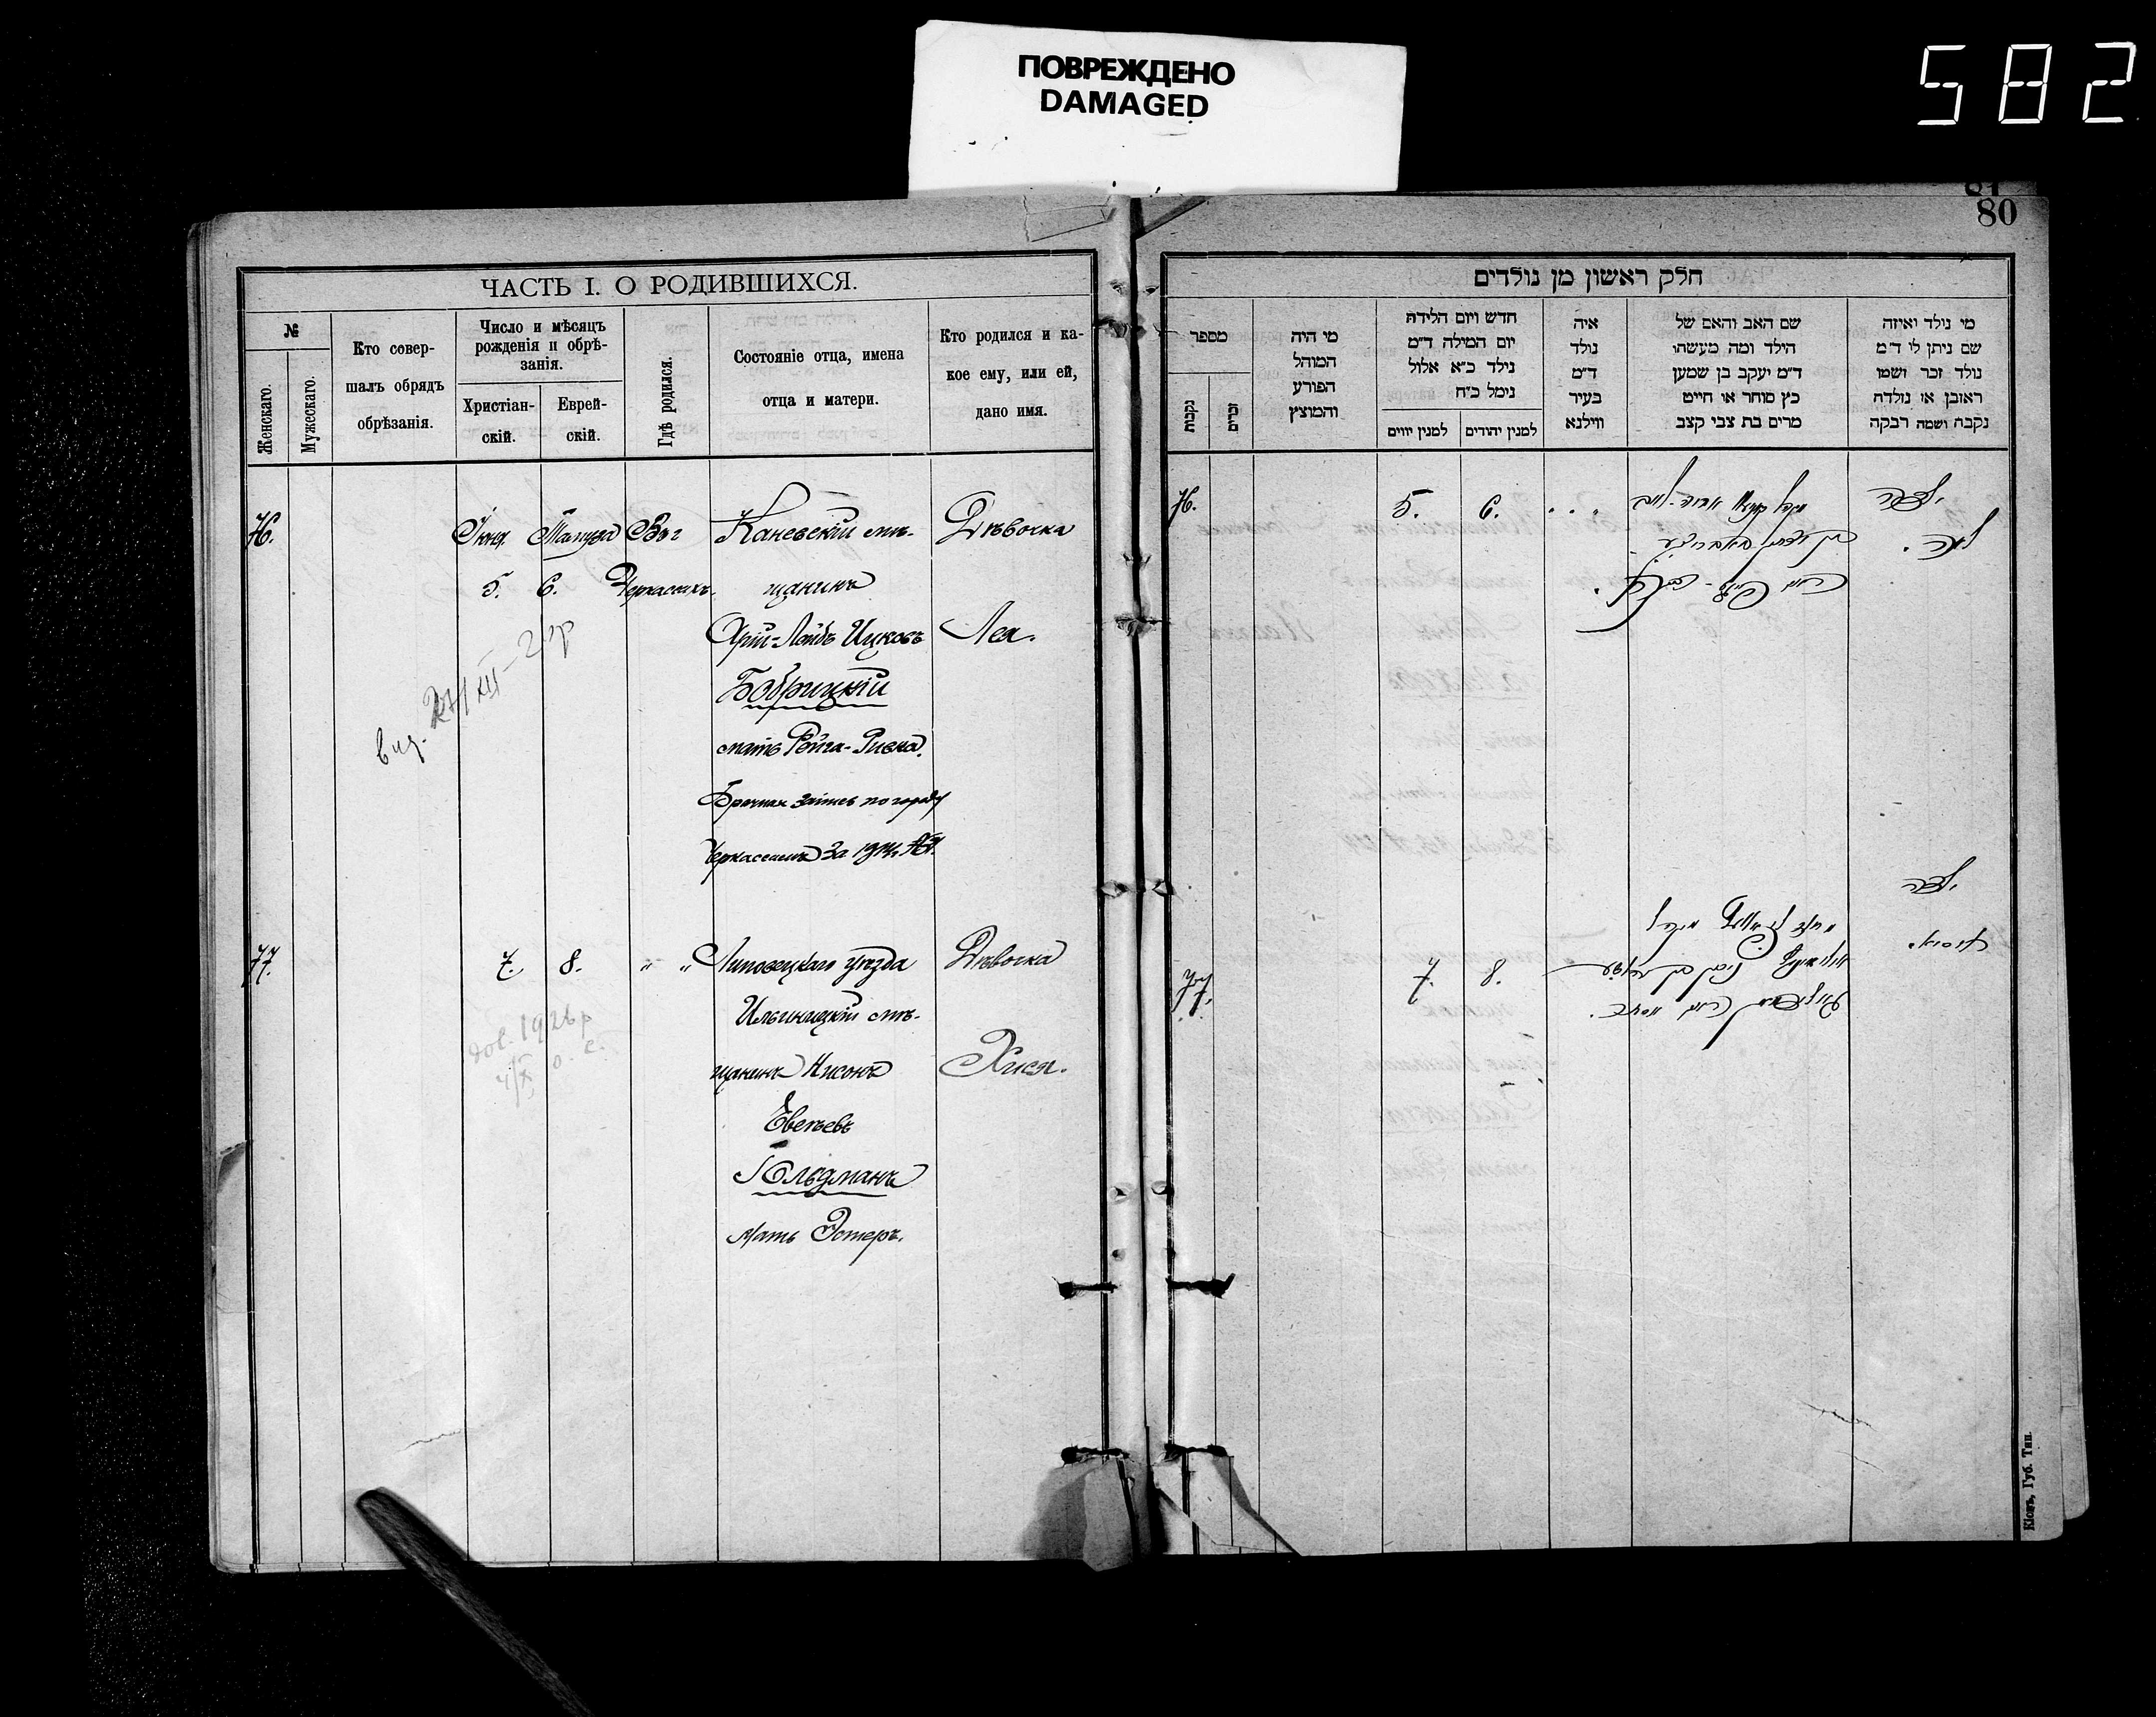 ПОВРЕЖДЕНО
DAMAGED
582
81
80
ЧАСТЬ I. О РОДИВШИХСЯ.
№
Женскаго.
Мужескаго.
Кто совер-
шалъ обрядъ
обрѣзанія.
Число и мѣсяцъ
рожденія и обрѣ-
занія.
Христіан-
скій.
Еврей-
скій.
Гдѣ родился.
Состояніе отца, имена
отца и матери.
Кто родился и ка-
кое ему, или ей,
дано имя.
76.
Іюня
5.
Тамуза
6.
Въ г
Черкассахъ.
Каневскій мѣ-
щанинъ
Арій-Лейбъ Ицковъ
Бобрицкій
мать Рейза-Ривка.
Брачная запись по городу
Черкассамъ за 1914
Дѣвочка
Лея.
вид.
77.
7.
8.
" "
Липовецкаго уѣзда
Ильинецкій мѣ-
щанинъ Нисонъ
Евелевъ
Гольдманъ
мать Эстеръ.
Дѣвочка
Хися.
חלק ראשון מן נולדים
מספר
נקבות
זכרים
מי היה
המוהל
הפורע
והמוצץ
חדש ויום הלידה
יום המילה ד״מ
נילד כ״א אלול
נימל כ״ח
למנין יווים
למנין יהודים
איה
נולד
ד״מ
בעיר
ווילנא
שם האב והאם של
הילד ומה מעשהו
ד״מ יעקב בן שמען
כץ סוחר או חייט
מרים בת צבי קצב
מי נולד ואיזה
שם ניתן לו ד״מ
נולד זכר ושמו
ראובן או נולדה
נקבה ושמה רבקה
76.
5.
6.
ילדה
לאה.
77.
7.
8.
ילדה
Кіевъ, Губ. Тип.